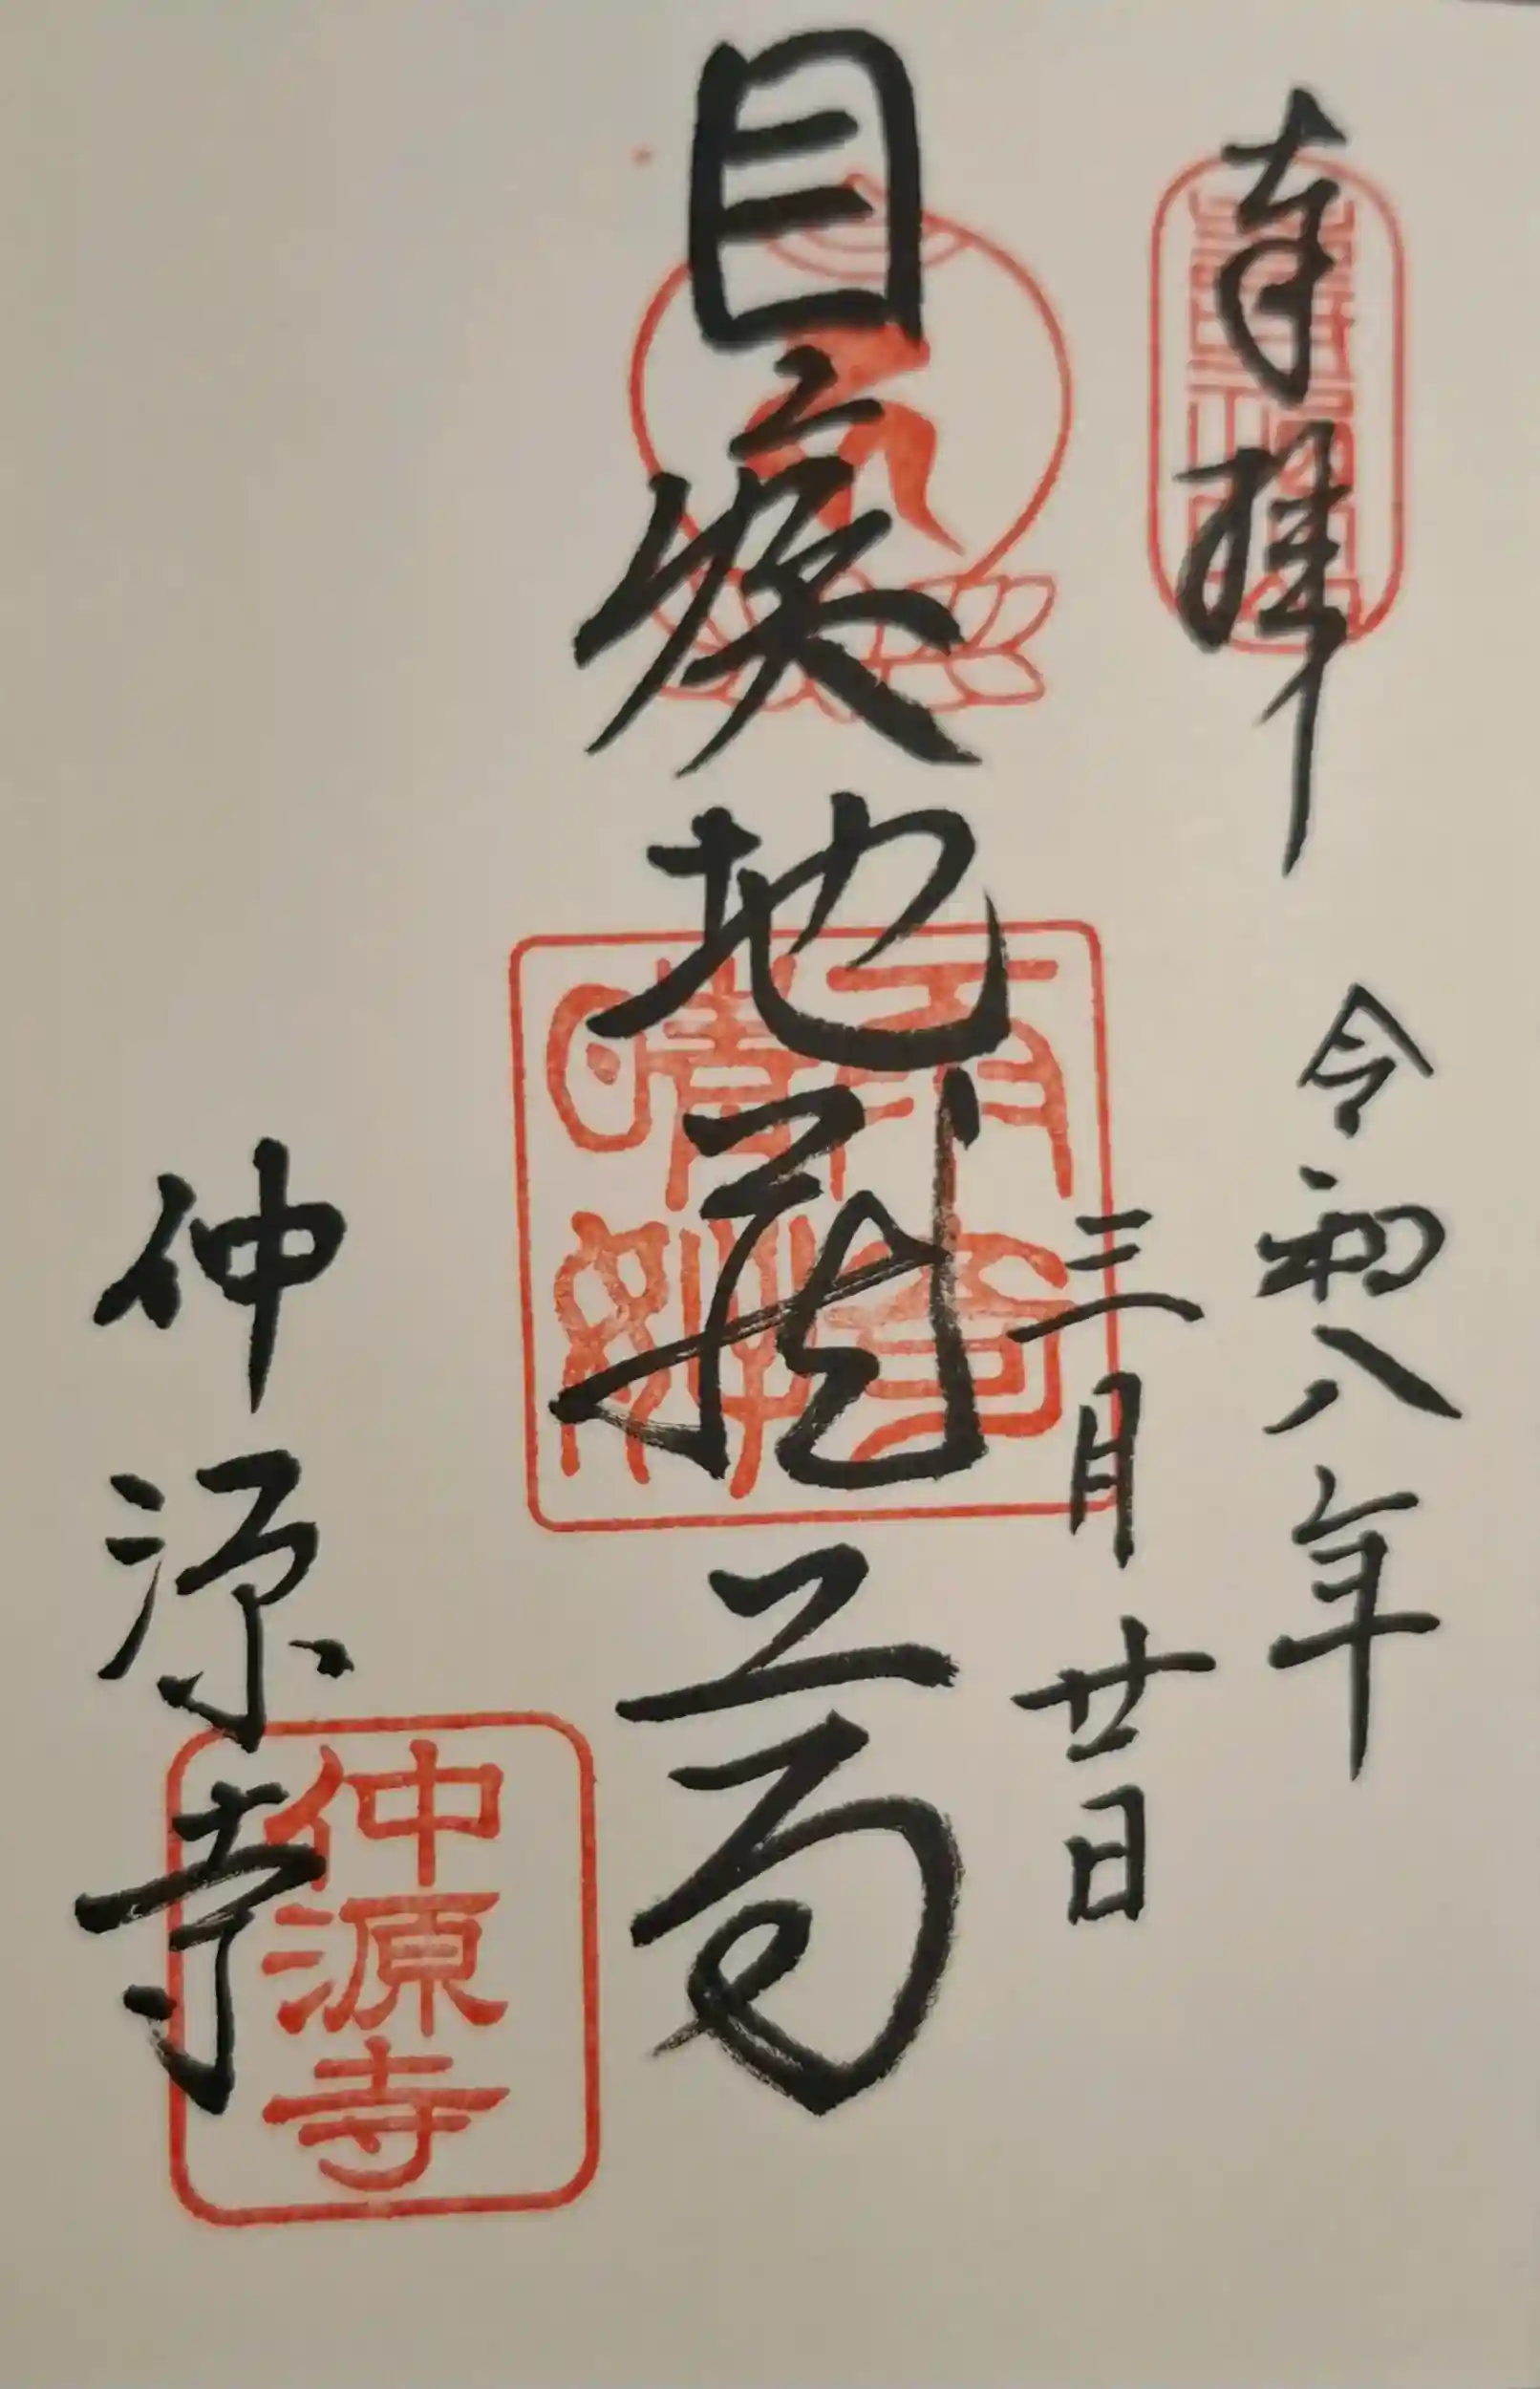 奉拝
令和八年
三月廿日
目疾地蔵
雨奇
晴好
仲源寺
仲源寺